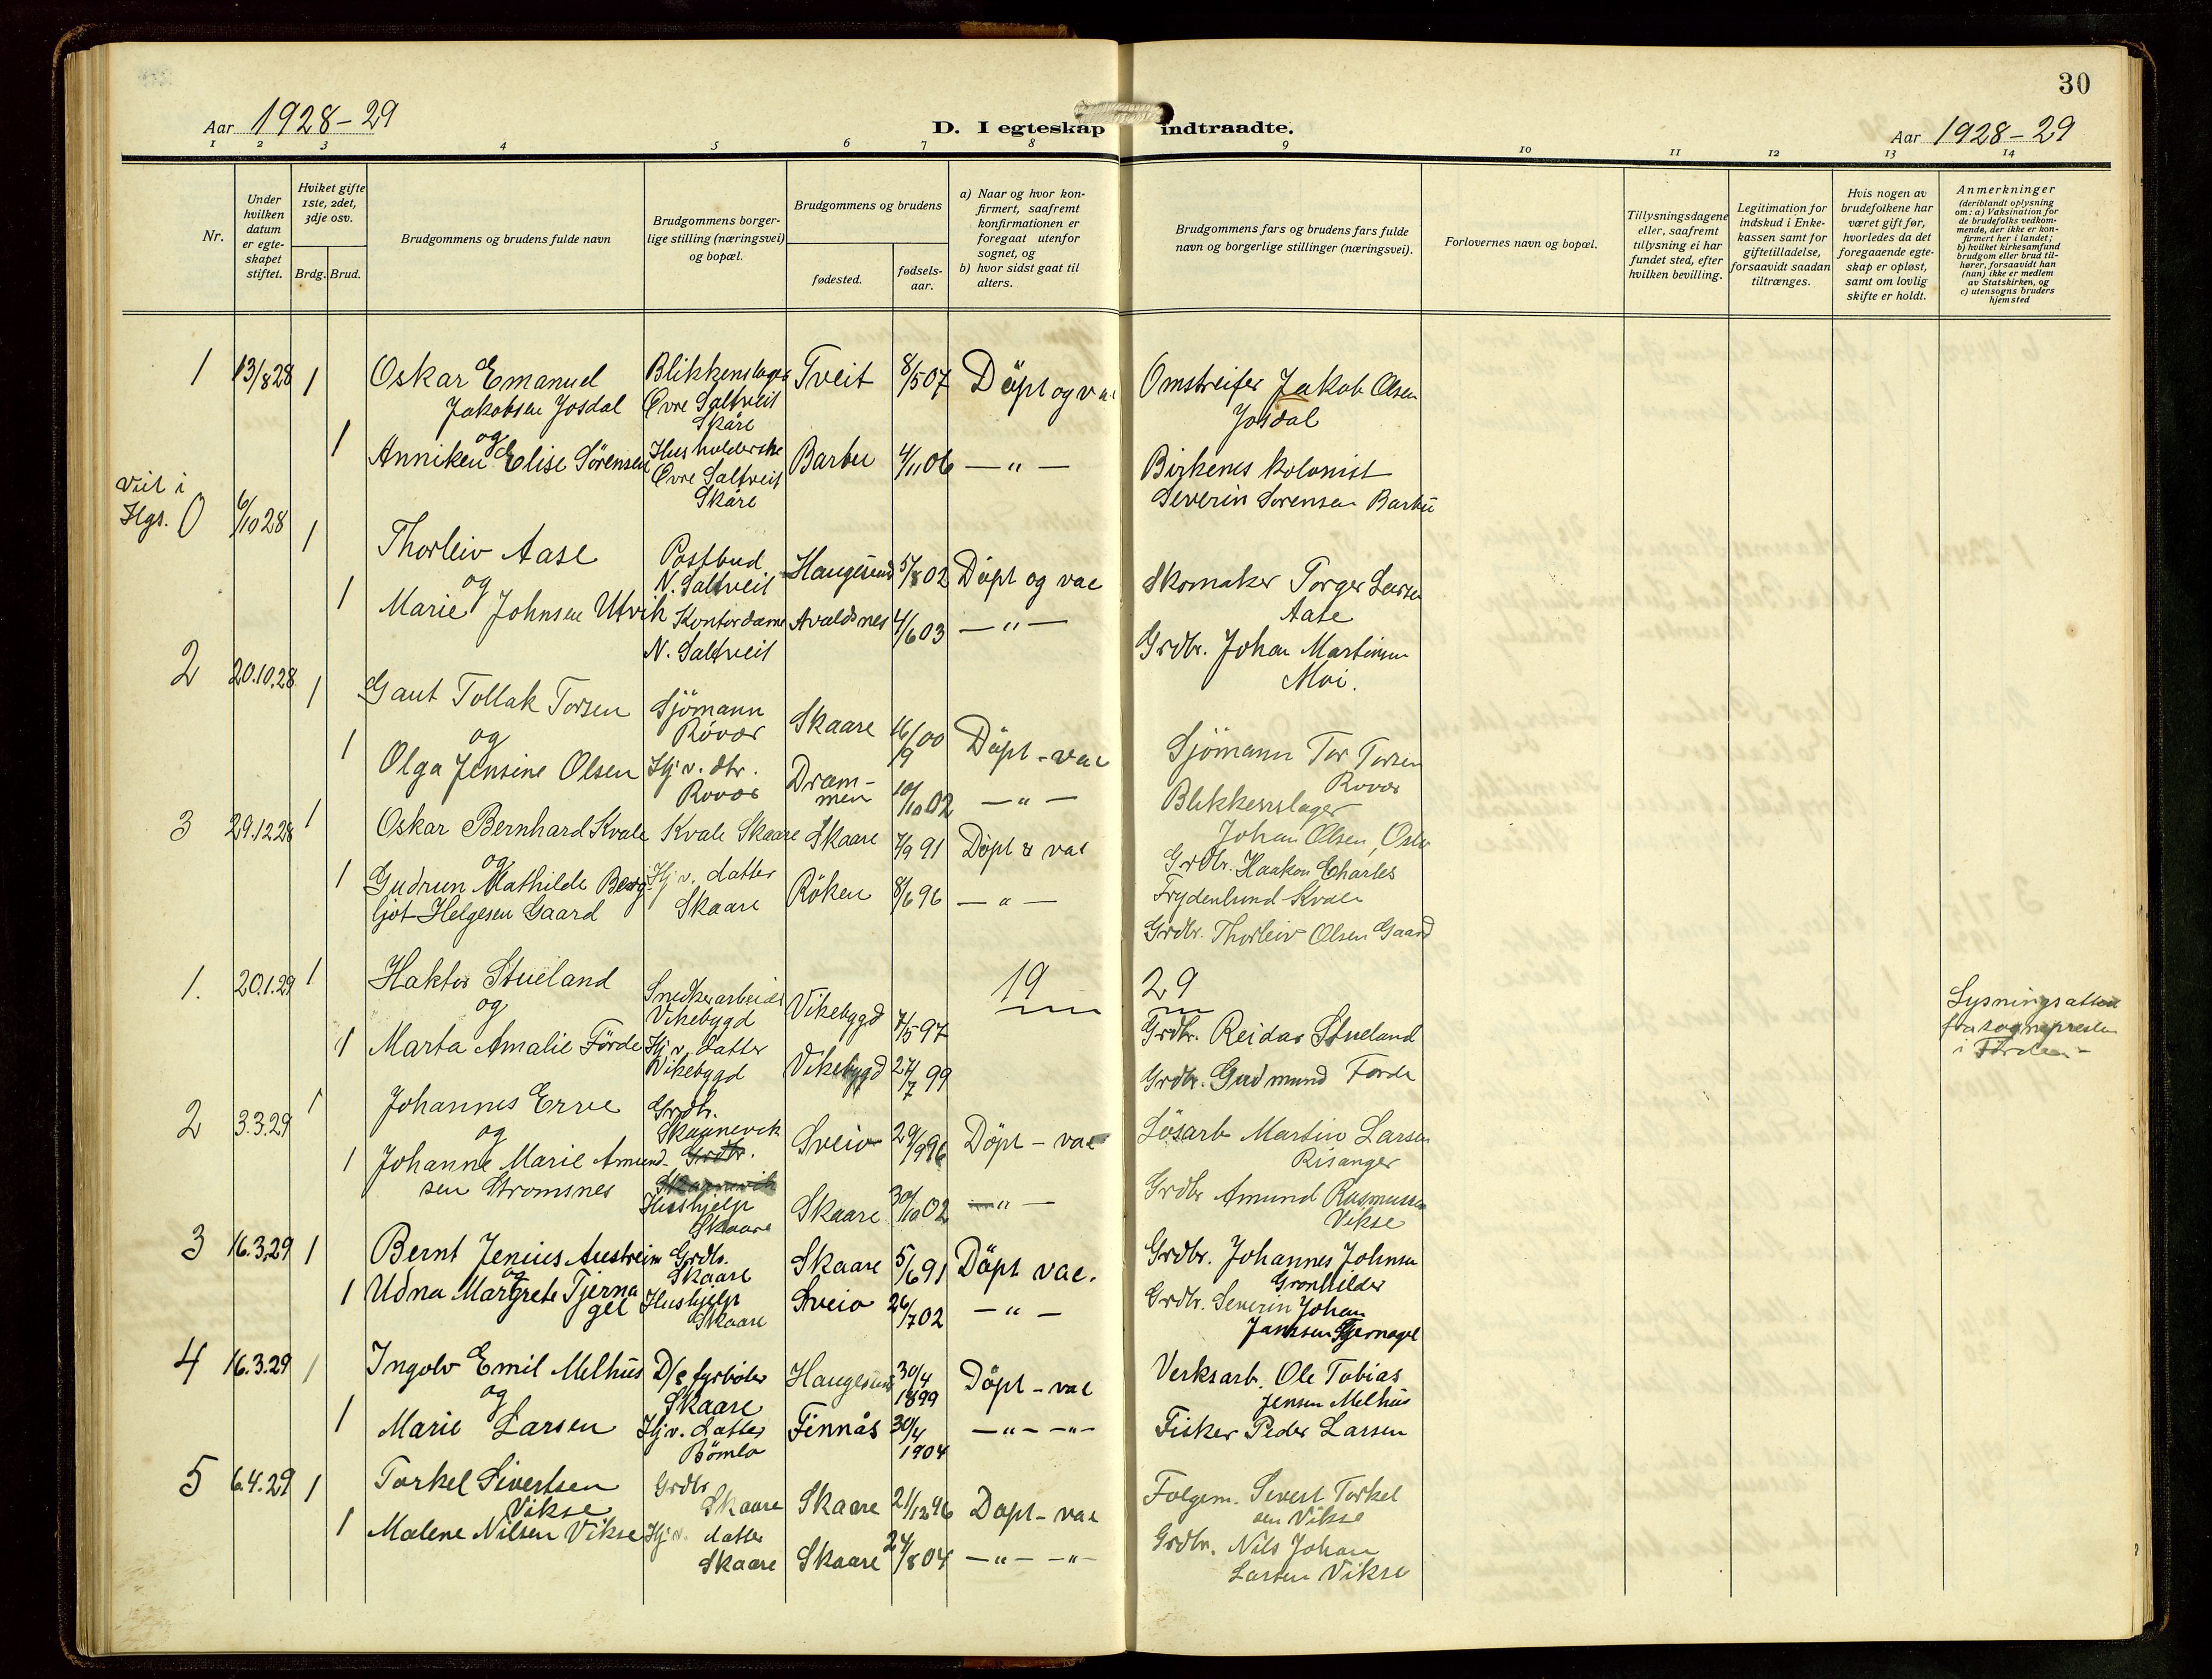 30
Aar 1928-29
D. I egteskap indtraadte.
Aar 1928-29
1 2 3 4 5 6 7 8 9 10 11 12 13 14
Nr.
Under hvilken datum er egte-skapet stiftet.
Hviket gifte 1ste, 2det, 3dje osv.
Brdg. Brud.
Brudgommens og brudens fulde navn
Brudgommens borger-lige stilling (næringsvei) og bopæl.
Brudgommens og brudens
fødested.
fødsels-aar.
a) Naar og hvor kon-firmert, saafremt konfirmationen er foregaat utenfor sognet, og
b) hvor sidst gaat til alters.
Brudgommens fars og brudens fars fulde navn og borgerlige stillinger (næringsvei).
Forlovernes navn og bopæl.
Tillysningsdagene eller, saafremt tillysning ei har fundet sted, efter hvilken bevilling.
Legitimation for indskud i Enke-kassen samt for giftetilladelse, forsaavidt saadan tiltrænges.
Hvis nogen av brudefolkene har været gift før, hvorledes da det foregaaende egte-skap er opløst, samt om lovlig skifte er holdt.
Anmerkninger (deriblandt oplysning om: a) Vaksination for de brudefolks vedkom-mende, der ikke er kon-firmert her i landet; b) hvilket kirkesamfund brudgom eller brud til-hører, forsaavidt han (hun) ikke er medlem av Statskirken, og c) utensogns bruders hjemsted
1 13/8 28 1 Oskar Emanuel Blikkenslager Tveit 8/5 07 Döpt og vac Omstreifer Jakob Olsen
Jakobsen Josdal Øvre Saltveit Josdal
og Skåre
1 Anniken Elise Sørensen Husholderske Barbu 4/11 06 — " — Birkenes kolonist
Øvre Saltveit Severin Sorensen Barbu
Skåre
Viet i
Hgs. 0 6/10 28 1 Thorleiv Aase Postbud Haugesund 5/8 02 Döpt og vac Skomaker Torger Larsen
og N. Saltveit Aase
1 Marie Johnsen Utvik Kontordame Avaldsnes 4/6 03 — " — Grdbr. Johan Martinsen
N. Saltveit Moi.
2 20.10.28 1 Gaut Tollak Torsen Sjömann Skaare 16/9 00 Döpt - vac Sjömann Tor Torsen
og Rövær Rovær
1 Olga Jensine Olsen Hjv. dtr. Dram- 10/10 02 — " — Blikkenslager
Rovær men Johan Olsen, Oslo
3 29.12.28 1 Oskar Bernhard Kvale Kvale Skaare Skaare 7/9 91 Döpt & vac Grdbr. Haakon Charles
og Frydenlund Kvale
1 Gudrun Mathilde Berg- Hjv. datter Röken 8/6 96 — " — Grdbr. Thorleiv Olsen Gaard
ljot Helgesen Gaard Skaare
19 29
1. 20.1.29 1 Haktor Stueland Snedkerarbeider Vikebygd 7/5 97 Grdbr. Reidar Stueland
og Vikebygd
1 Marta Amalie Förde Hjv. datter Vikebygd 27/7 99 Grdbr. Gudmund Förde
Vikebygd
Lysningsattest
fra sognepresten
i Førde
2 3.3.29 1 Johannes Erve Grdbr. Sveio 29/9 96 Döpt - vac Lösarb Martin Larsen
og Skaanevik Risanger
1 Johanne Marie Amund- Grdbr. Skaare 30/10 02 — " — Grdbr Amund Rasmussen
sen Stromsnes Skaanevik Vikse
Hushjelp
Skaare
3 16.3.29 1 Bernt Jenius Austreim Grdbr. Skaare 5/6 91 Döpt vac. Grdbr. Johannes Johnsen
og Skaare Gronhilder
1 Udna Margrete Tjerna Hushjelp Sveio 26/7 02 — " — Grdbr. Severin Johan
gel Skaare Jansen Tjernagel
4 16.3.29 1 Ingolv Emil Melhus D/s fyrböter Haugesund 30/4 1899 Döpt - vac Verksarb. Ole Tobias
og Skaare Jensen Melhus
1 Marie Larsen Hjv. datter Finnås 30/4 1904 — " — — " — Fisker Peder Larsen
Bömlo
5 6.4.29 1 Torkel Sivertsen Grdbr Skaare 21/12 96 Döpt - vac Folgem. Sivert Torkel
Vikse Skaare sen Vikse
1 Malene Nilsen Vikse Hjv. datter Skaare 24/8 04 — " — — " — Grdbr. Nils Johan
Skaare Larsen Vikse